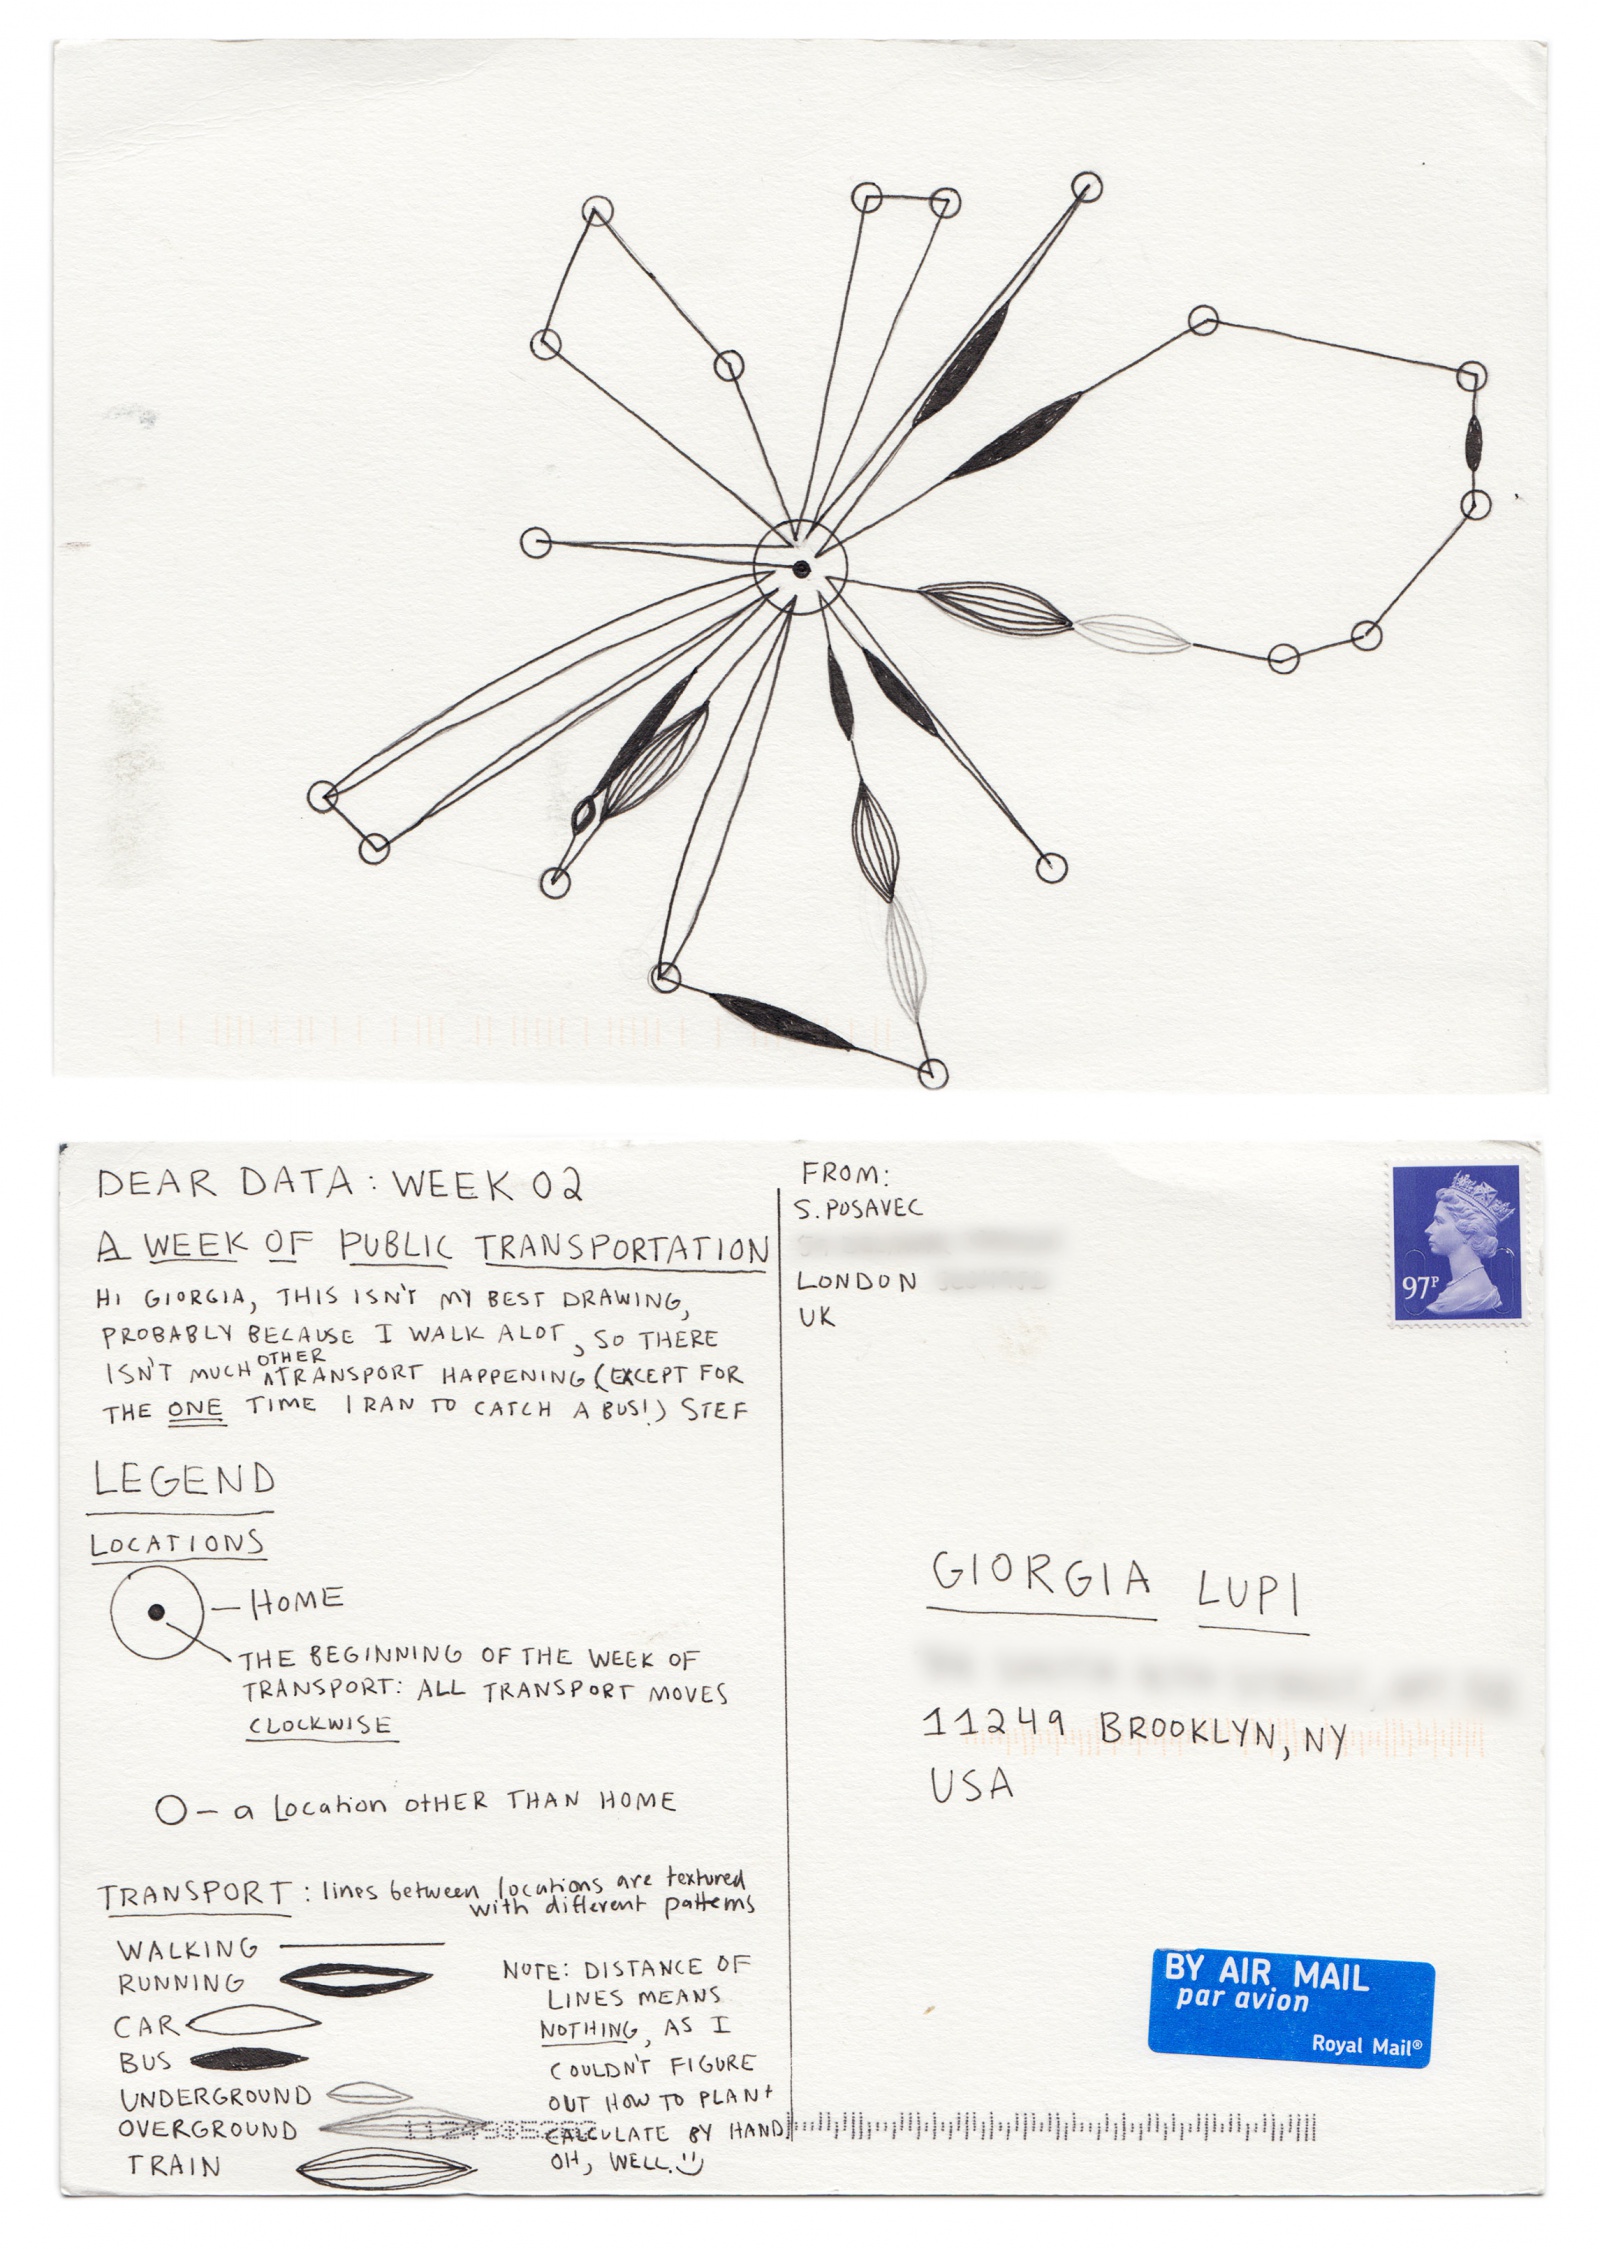 DEAR DATA: WEEK 02
A WEEK OF PUBLIC TRANSPORTATION
HI GIORGIA, THIS ISN'T MY BEST DRAWING,
PROBABLY BECAUSE I WALK ALOT, SO THERE
ISN'T MUCH OTHER TRANSPORT HAPPENING (EXCEPT FOR
THE ONE TIME I RAN TO CATCH A BUS!) STEF
LEGEND
LOCATIONS
– HOME
THE BEGINNING OF THE WEEK OF
TRANSPORT: ALL TRANSPORT MOVES
CLOCKWISE
O – a Location OTHER THAN HOME
TRANSPORT: lines between locations are textured
with different patterns
WALKING
RUNNING
CAR
BUS
UNDERGROUND
OVERGROUND
TRAIN
NOTE: DISTANCE OF
LINES MEANS
NOTHING, AS I
COULDN'T FIGURE
OUT HOW TO PLAN +
CALCULATE BY HAND!
OH, WELL.
FROM:
S. POSAVEC
LONDON
UK
97P
GIORGIA LUPI
11249 BROOKLYN, NY
USA
BY AIR MAIL
par avion
Royal Mail®